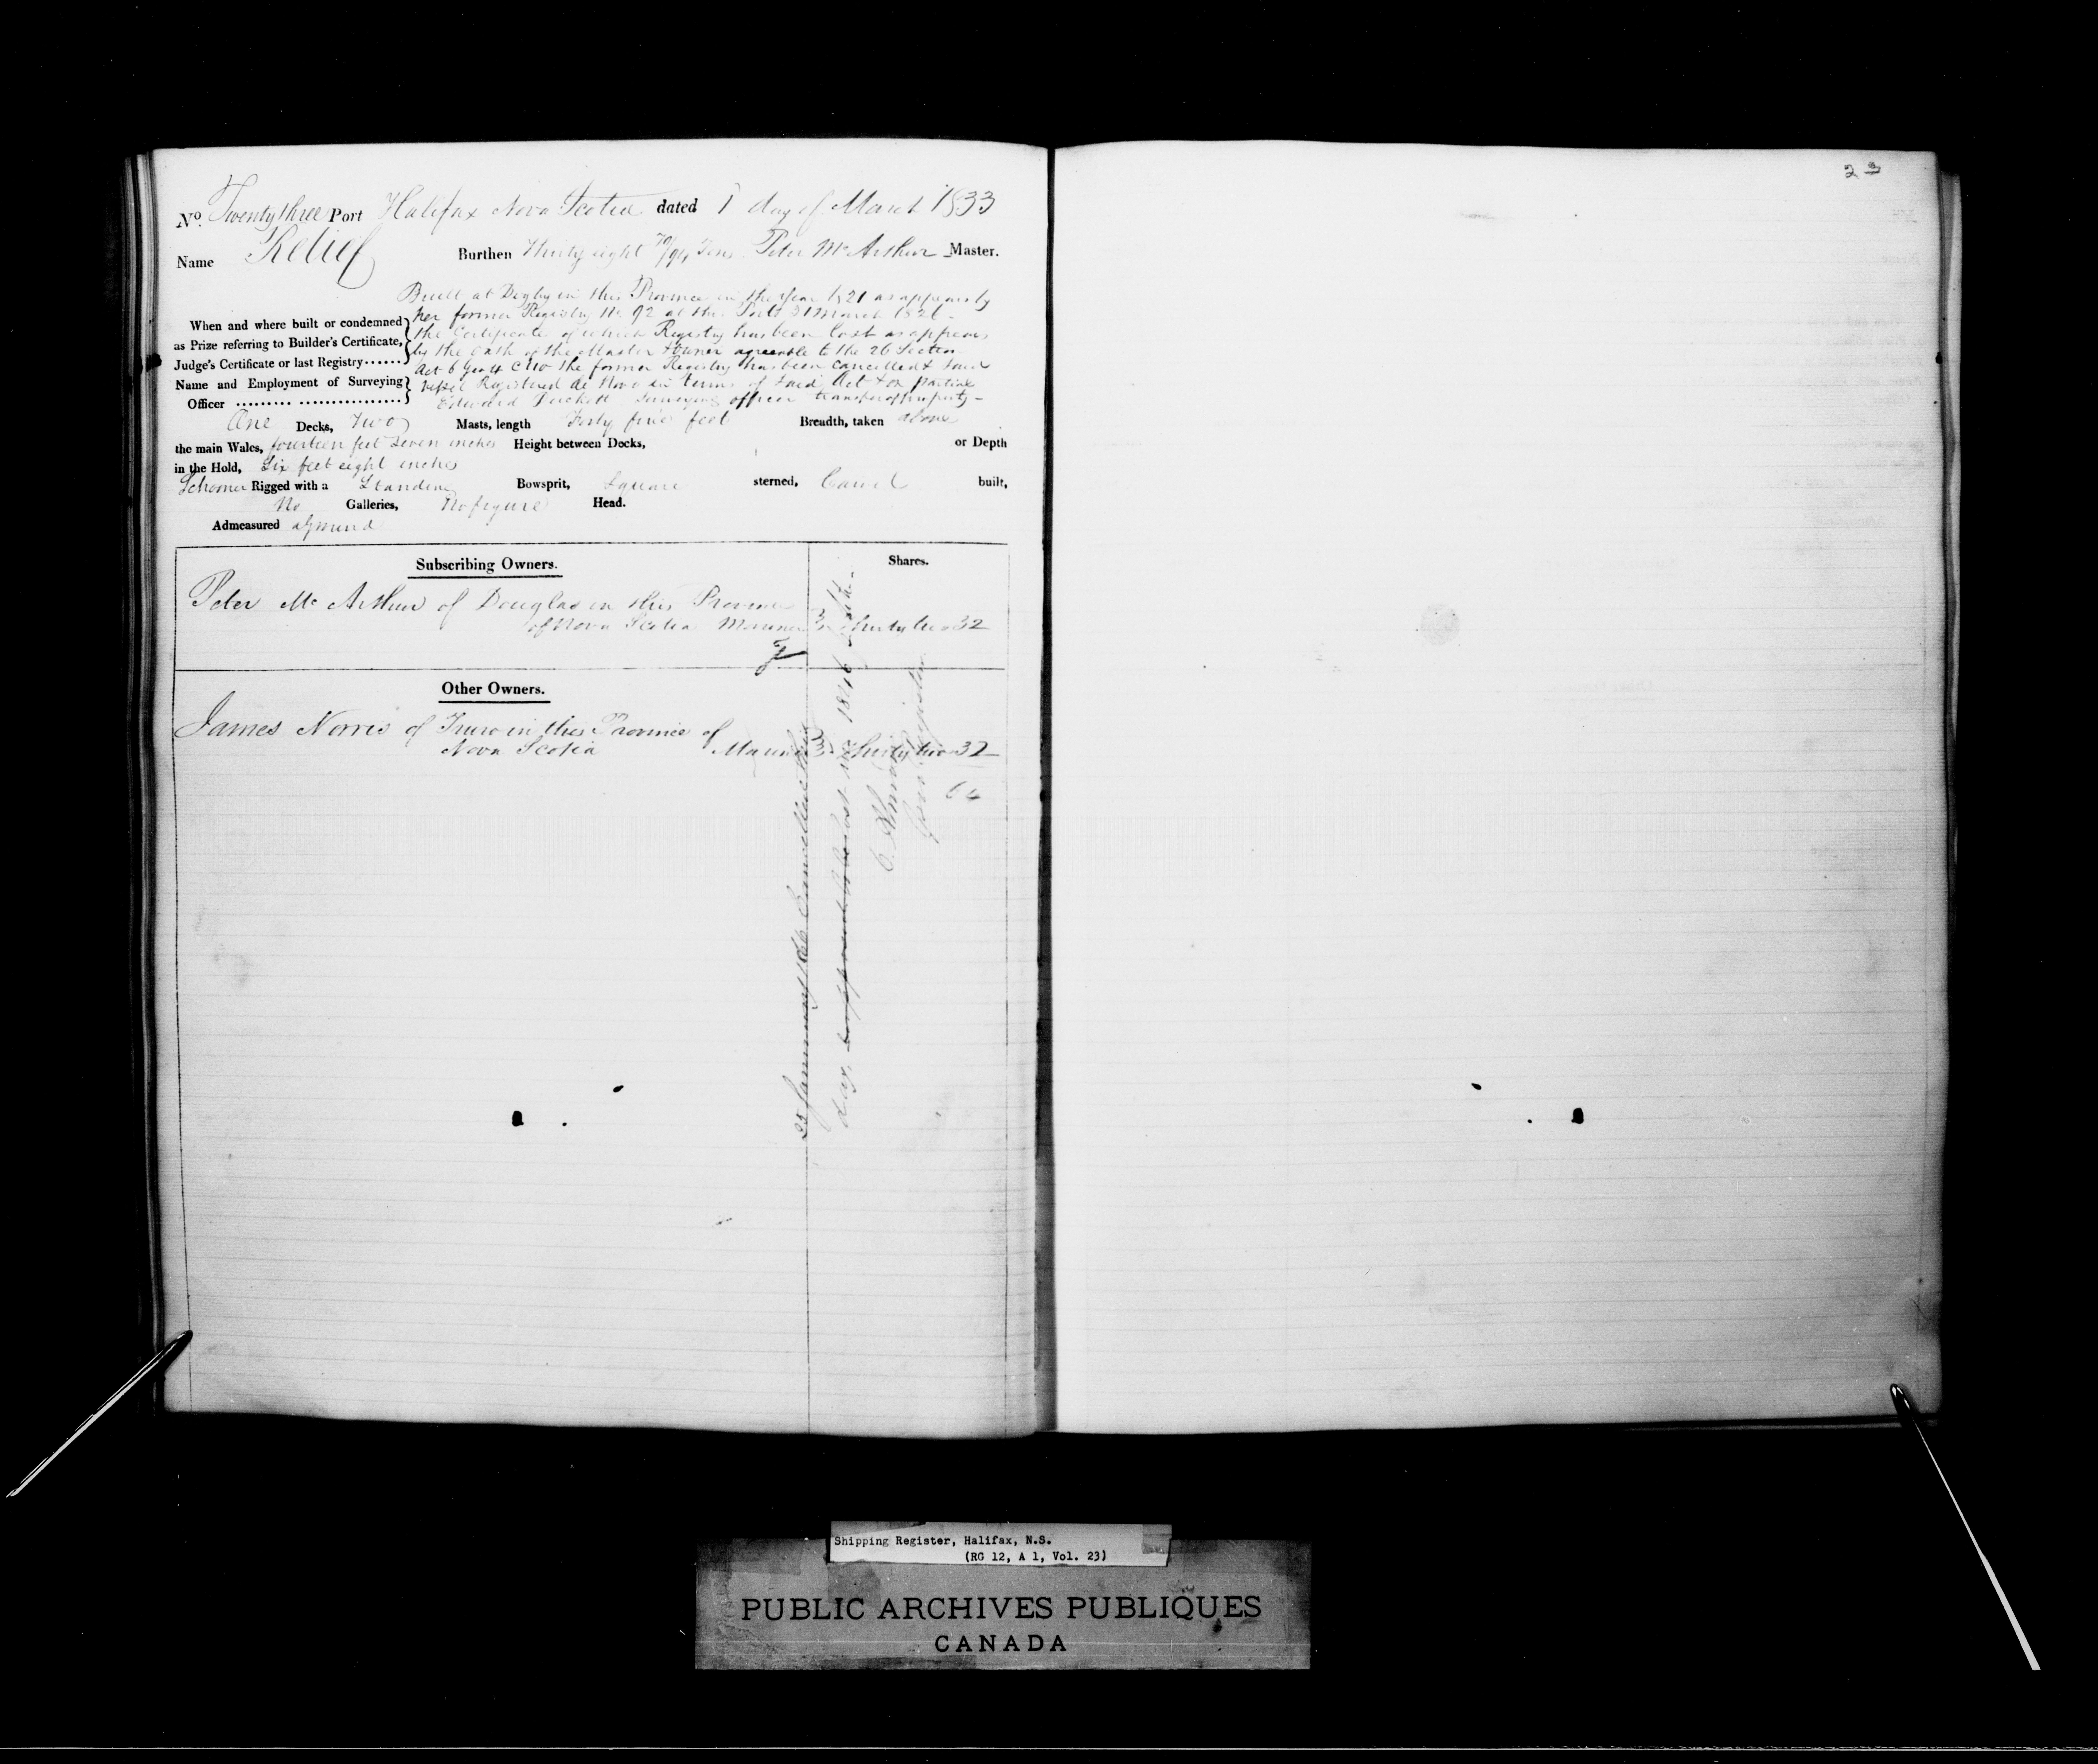 23
No. Twenty three Port Halifax Nova Scotia dated 1 day of March 1833
Name Relief Burthen Thirty eight 70/94 Tons Peter Mc Arthur Master.
Built at Digby in this Province in the Year 1821 as appears by
her former Registry No. 92 at this Port 31 March 1826 -
the Certificate of which Registry has been lost as appears
by the oath of the Master & owner agreeable to the 26 Section
Act 6 Geo 4 C 110 the former Registry has been cancelled & said
vessel Registered de Novo in terms of said Act & on partial
When and where built or condemned
as Prize referring to Builder's Certificate,
Judge's Certificate or last Registry......
Name and Employment of Surveying
Officer ......... ................. Edward Duckett Surveying officer transfer of property -
One Decks, Two Masts, length Forty five feet Breadth, taken above
the main Wales, fourteen feet seven inches Height between Decks, or Depth
in the Hold, Six feet eight inches
Schooner Rigged with a Standing Bowsprit, Square sterned, Carvel built,
No Galleries, No figure Head.
Admeasured aground
Subscribing Owners. Shares.
Peter Mc Arthur of Douglas in this Province
of Nova Scotia Mariner Thirty two 32
Other Owners.
James Norris of Truro in this Province of
Nova Scotia Mariner Thirty two 32
64
25 January 1866 Cancelled this
day. supposed to be lost in 1846
Shipping Register, Halifax, N.S.
(RG 12, A 1, Vol. 23)
PUBLIC ARCHIVES PUBLIQUES
CANADA